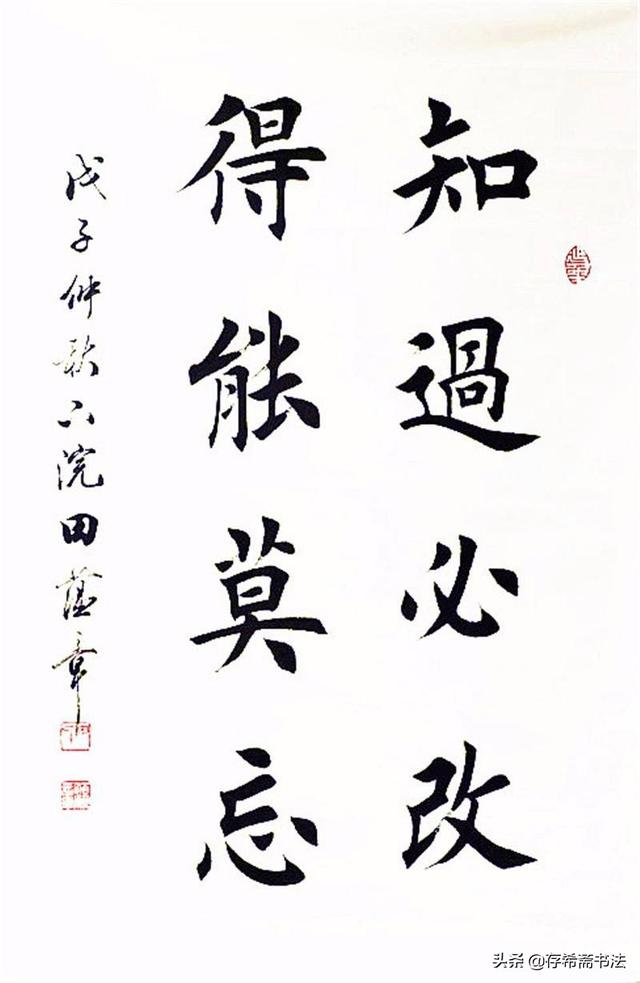 知過必改
得能莫忘
戊子仲秋六院田蘊章
头条@存希斋书法